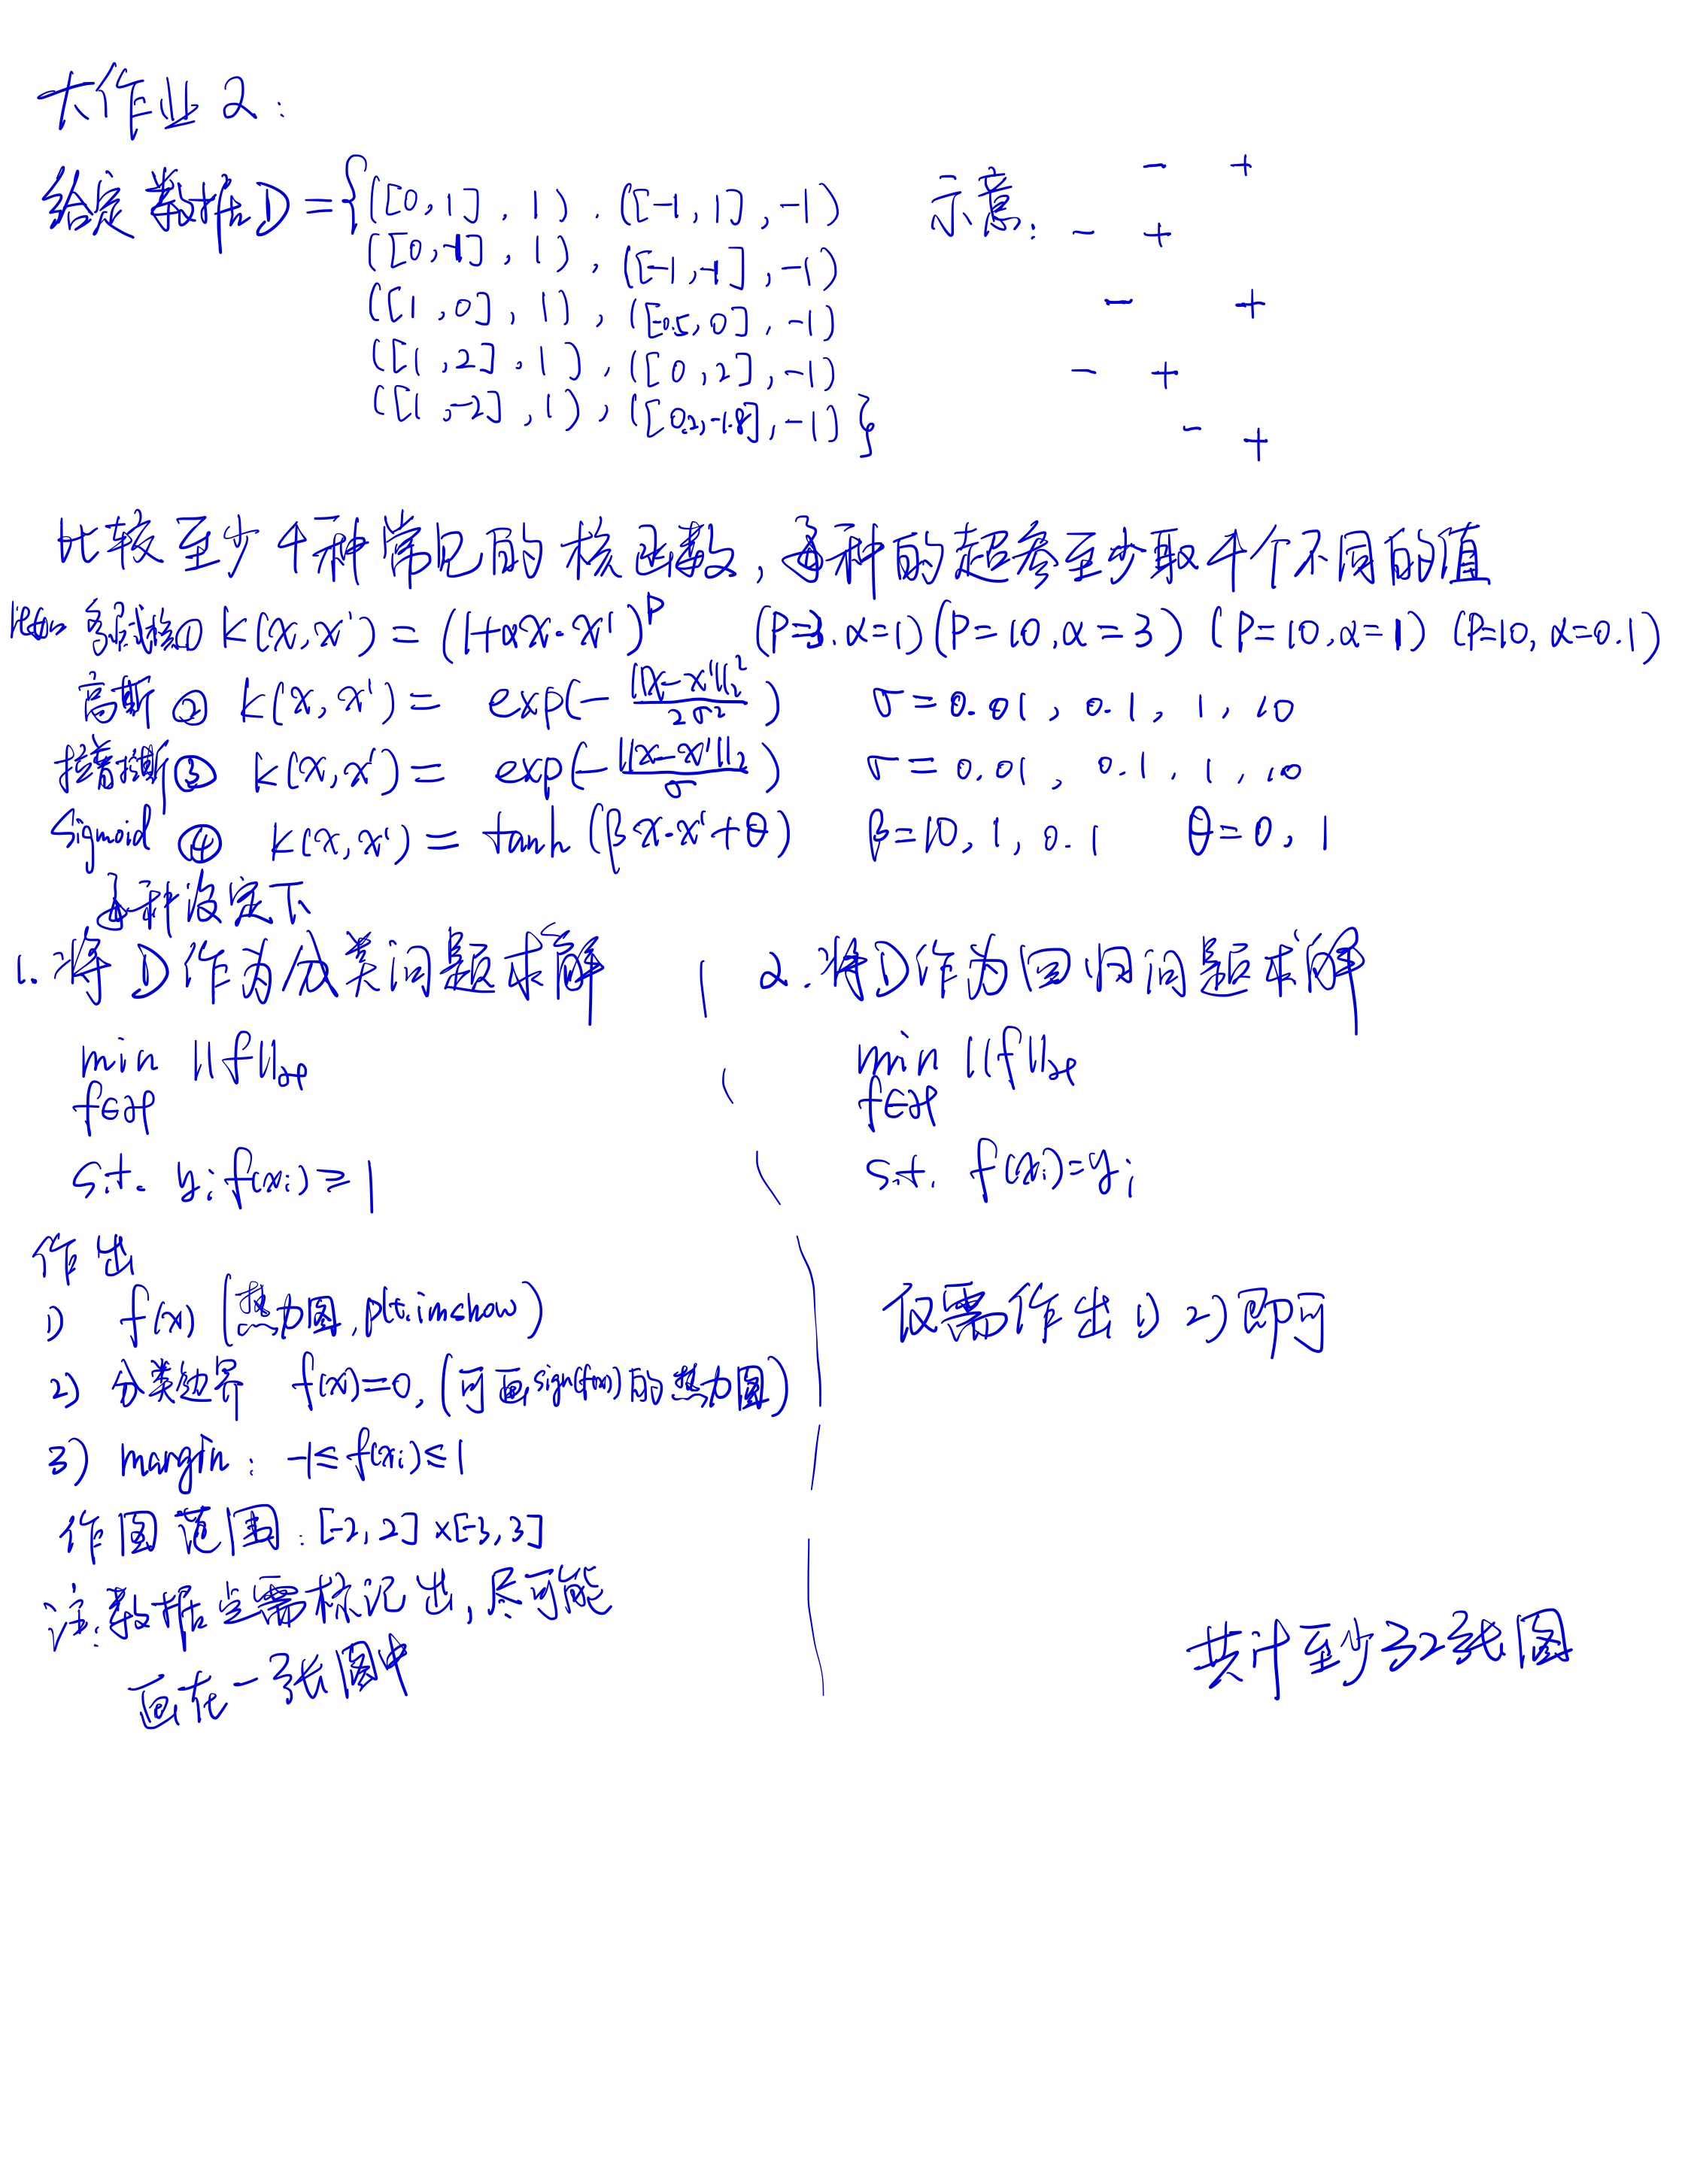 大作业2:
给定数据D={([0,1],1).([-1,1],-1) 示意: - +
([0,-1],1),([-1,-1],-1) - +
([1,0],1),([-0.5,0],-1) - +
([1,2],1),([0,2],-1) - +
([1,-2],1),([0.2,-1.8],-1)} - +
比较至少4种常见的核函数,每种的超参至少取4个不同的值
比如 多项式核① k(x,x')=(1+αx·x')^p (P=3.α=1)(P=10,α=3)(P=10.α=1)(P=10,α=0.1)
高斯② k(x,x')= exp(-||x-x'||₂²/2σ²) σ=0.01,0.1,1,10
拉普拉斯③ k(x,x')= exp(-||x-x'||₂/σ) σ=0.01,0.1,1,10
Sigmoid ④ k(x,x')=tanh(βx·x'+θ) β=10,1,0.1 θ=0,1
每种设定下
1.将D作为分类问题求解
min ||f||ℋ
f∈ℋ
s.t. yᵢf(xᵢ)≥1
作出
1) f(x)(热力图,plt.imshow)
2) 分类边界 f(x)=0,(可画sign(f(x))的热力图)
3) margin: -1≤f(xᵢ)≤1
作图范围:[-2,2]×[-3,3]
注:数据点需标记出,尽可能
画在一张图中
2.将D作为回归问题求解
min ||f||ℋ
f∈ℋ
s.t. f(xᵢ)=yᵢ
仅需作出1) 2)即可
共计至少32张图